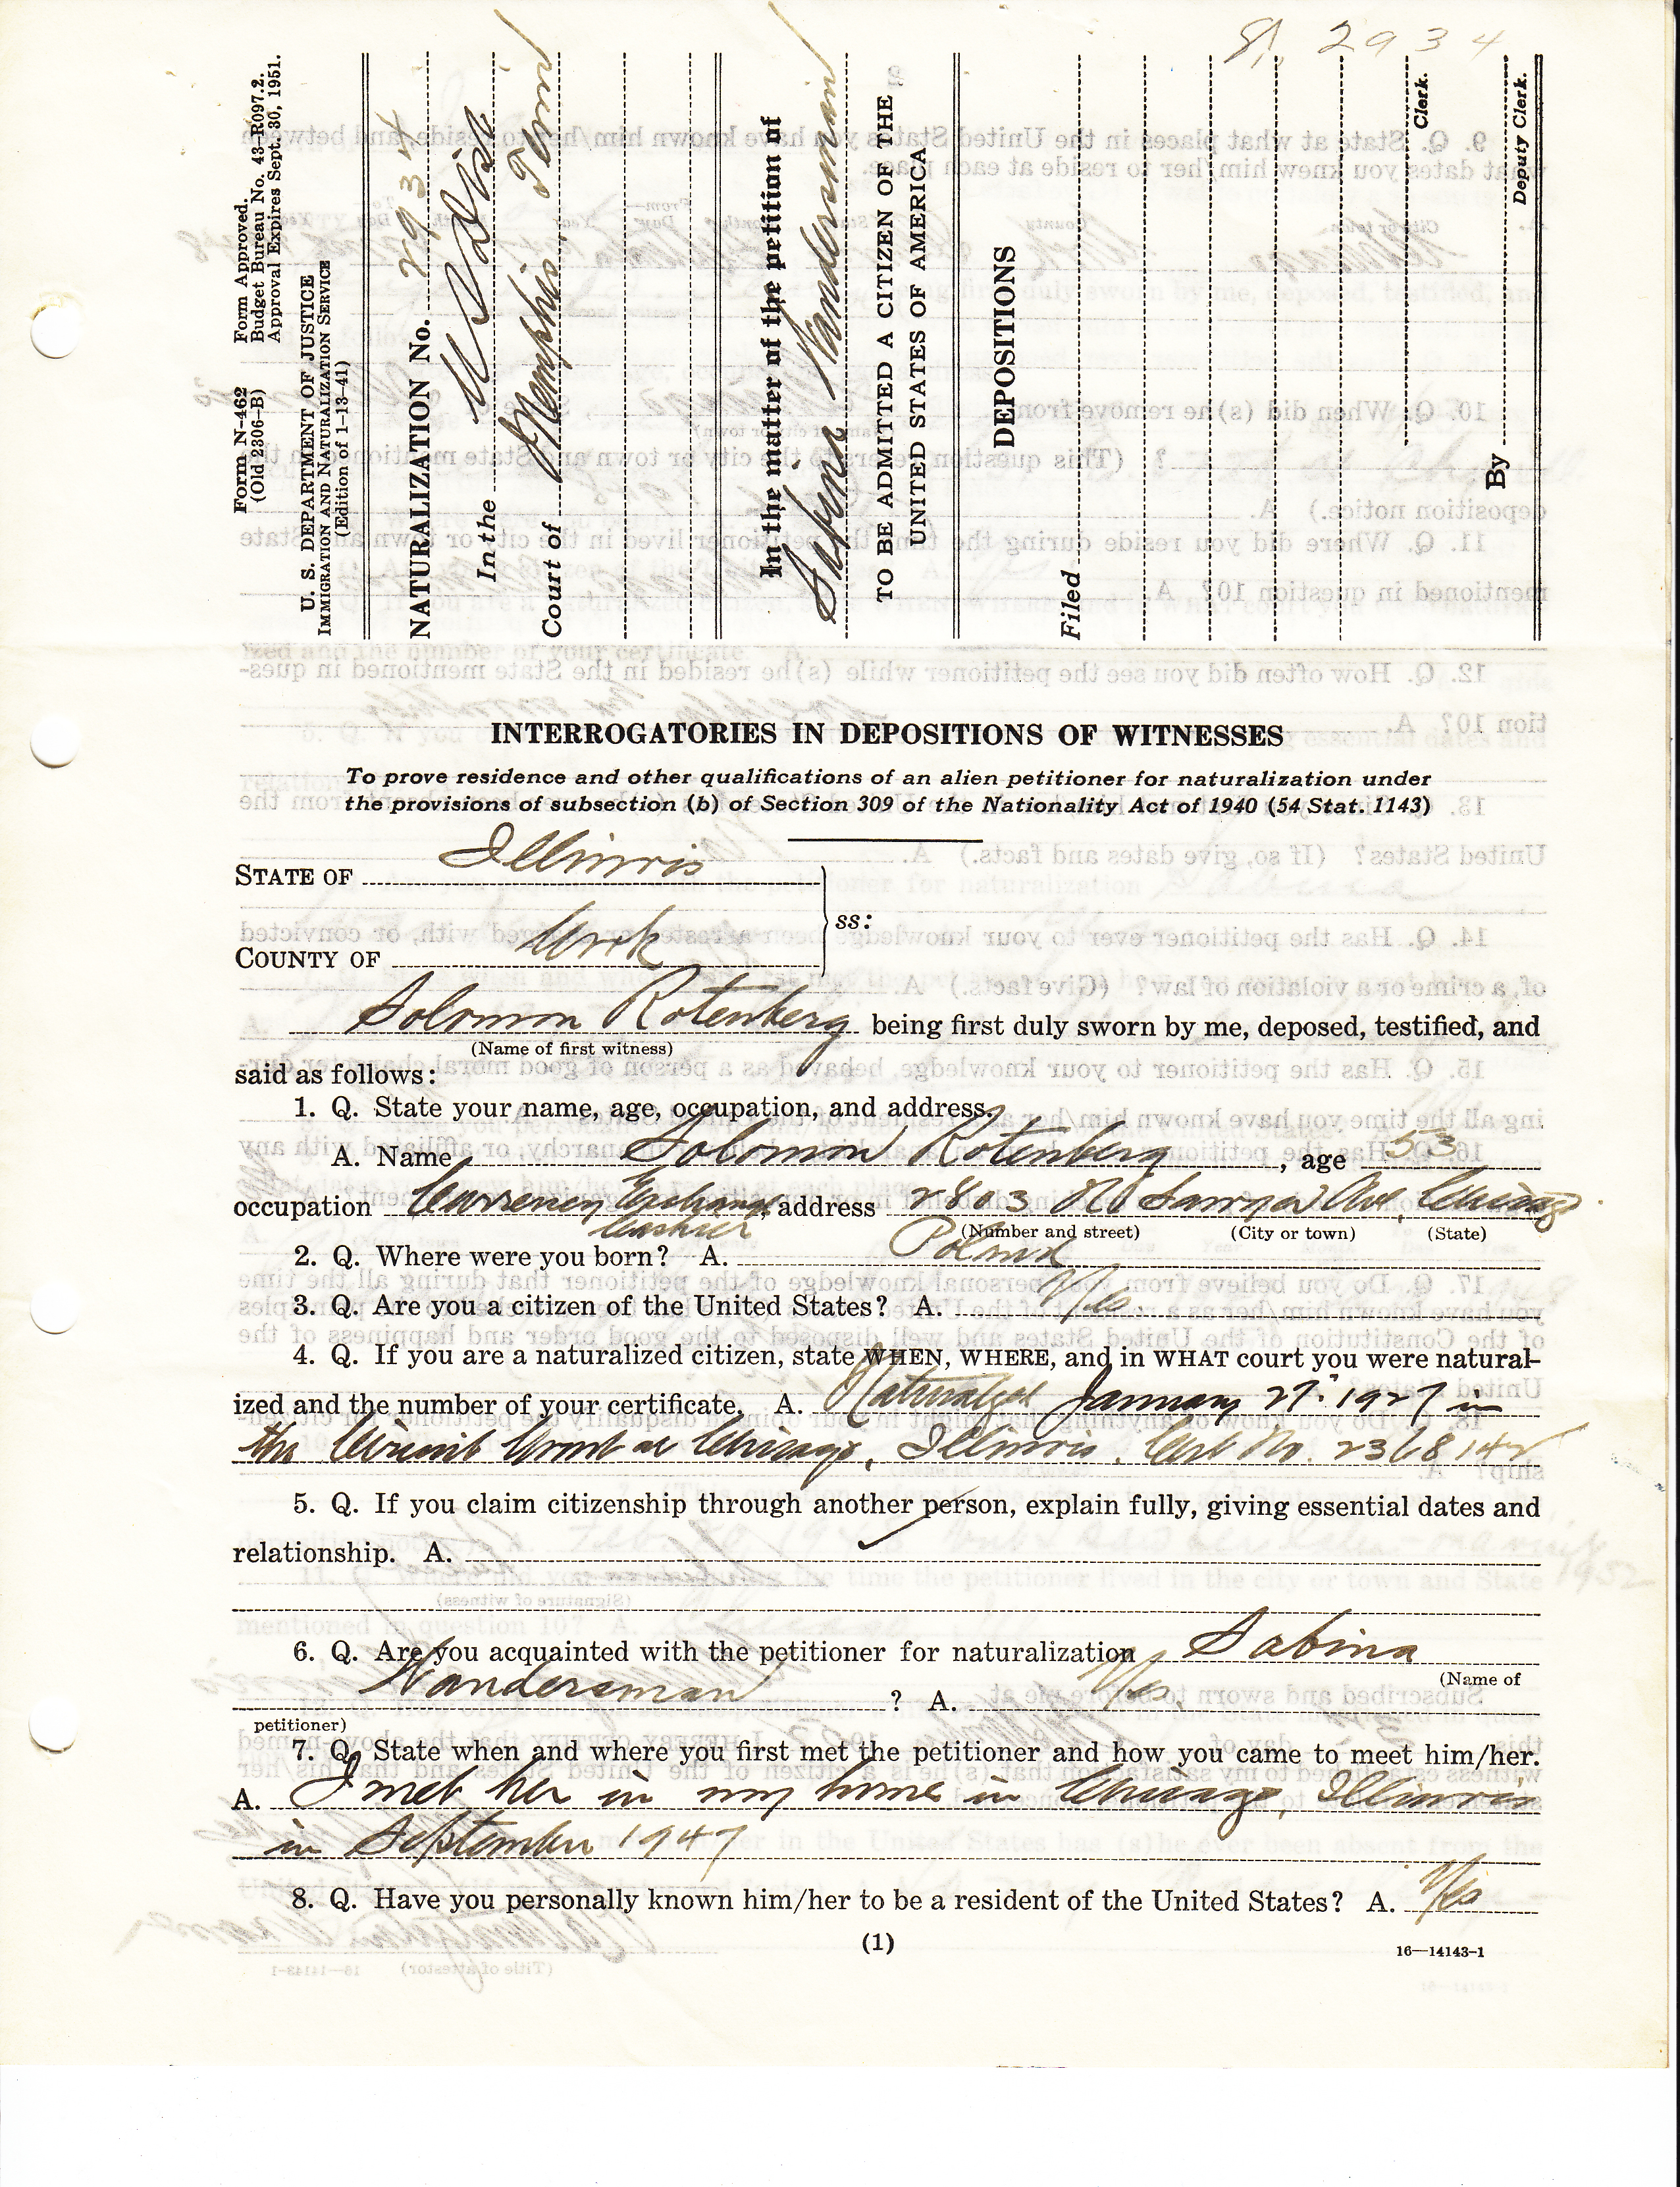 2934
Form N-462
(Old 2306-B)
Form Approved.
Budget Bureau No. 43-R097.2.
Approval Expires Sept. 30, 1951.
U. S. DEPARTMENT OF JUSTICE
IMMIGRATION AND NATURALIZATION SERVICE
(Edition of 1-13-41)
NATURALIZATION No. 2934
In the U S Dist
Court of Memphis, Tenn
In the matter of the petition of
Sabina Wandersman
TO BE ADMITTED A CITIZEN OF THE
UNITED STATES OF AMERICA
DEPOSITIONS
Filed
Clerk.
By
Deputy Clerk.
INTERROGATORIES IN DEPOSITIONS OF WITNESSES
To prove residence and other qualifications of an alien petitioner for naturalization under
the provisions of subsection (b) of Section 309 of the Nationality Act of 1940 (54 Stat. 1143)
STATE OF Illinois
ss:
COUNTY OF Cook
Solomon Rotenberg being first duly sworn by me, deposed, testified, and
(Name of first witness)
said as follows:
1. Q. State your name, age, occupation, and address.
A. Name Solomon Rotenberg, age 53
occupation Currency Exchange, address 2803 No Sawyer Ave, Chicago
Cashier (Number and street) (City or town) (State)
2. Q. Where were you born? A. Poland
3. Q. Are you a citizen of the United States? A. Yes
4. Q. If you are a naturalized citizen, state WHEN, WHERE, and in WHAT court you were natural-
ized and the number of your certificate. A. Naturalized January 27. 1927 in
the Circuit Court at Chicago, Illinois. Cert No. 2368142
5. Q. If you claim citizenship through another person, explain fully, giving essential dates and
relationship. A.
6. Q. Are you acquainted with the petitioner for naturalization Sabina
(Name of
Wandersman ? A. Yes
petitioner)
7. Q. State when and where you first met the petitioner and how you came to meet him/her.
A. I met her in my home in Chicago, Illinois
in September 1947
8. Q. Have you personally known him/her to be a resident of the United States? A. Yes
(1)
16—14143-1